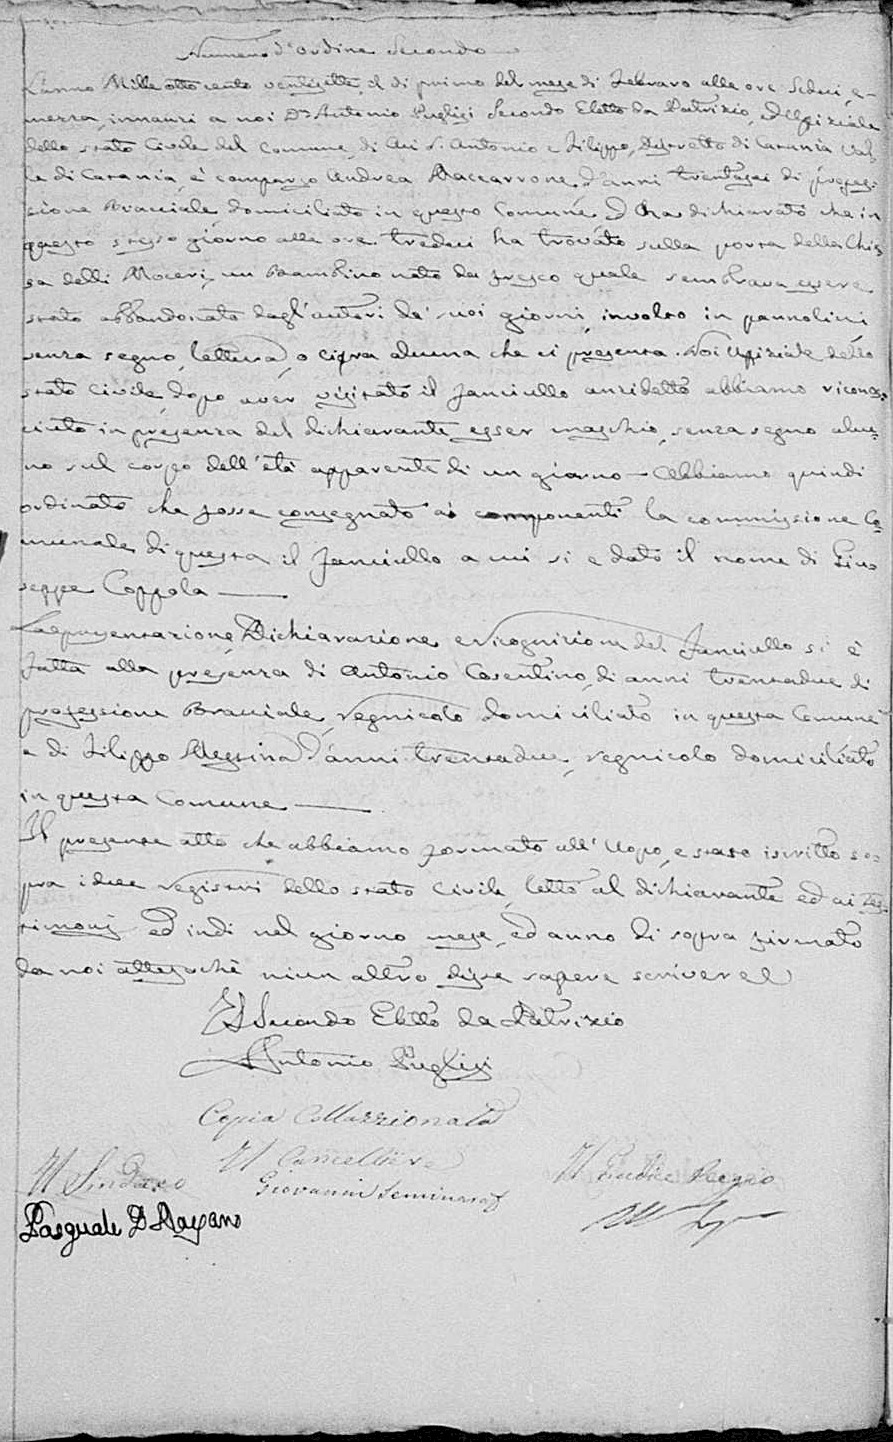 Numero d'ordine Secondo
L'anno Mille otto cento ventisette, il dì primo del mese di Febraro alle ore Sedici, e
mezza, innanzi a noi Dn Antonio Puglisi Secondo Eletto da Patrizio, ed Uffiziale
dello stato Civile del Comune di Aci S. Antonio e Filippo, Distretto di Catania Val
le di Catania, è comparso Andrea Maccarrone, d'anni trentasei di profes
sione Bracciale domiciliato in questo Comune, ed ha dichiarato che in
questo stesso giorno alle ore tredeci ha trovato sulla porta della Chie
sa delli Moceri, un Bambino nato da fresco quale sembrava essere
stato abbandonato dagl'autori de' suoi giorni, involto in pannolini
senza segno, lettera, o cifra alcuna che ci presenta. Noi Uffiziale dello
stato Civile, dopo aver visitato il fanciullo anzidetto abbiamo ricono
sciuto in presenza del dichiarante esser maschio, senza segno alcu
no sul corpo dell'età apparente di un giorno - Abbiamo quindi
ordinato che fosse consegnato ai componenti la commissione Co
munale di questa il fanciullo a cui si è dato il nome di Giu
seppe Coppola
La presentazione, Dichiarazione e ricognizione del fanciullo si è
fatta alla presenza di Antonio Cosentino, di anni trentadue di
professione Bracciale, regnicolo domiciliato in questa Comune
e di Filippo Messina d'anni trentadue, regnicolo domiciliato
in questa Comune
Il presente atto che abbiamo formato all'Uopo, è stato iscritto so
pra i due registri dello stato Civile, letto al dichiarante ed ai tes
timonj ed indi nel giorno mese, ed anno di sopra firmato
da noi attesochè niun altro disse sapere scrivere
Il Secondo Eletto da Patrizio
Antonio Puglisi
Copia Collazzionata
Il Sindaco Il Cancelliere Il Giudice Regio
Giovanni Seminara
Pasquale D